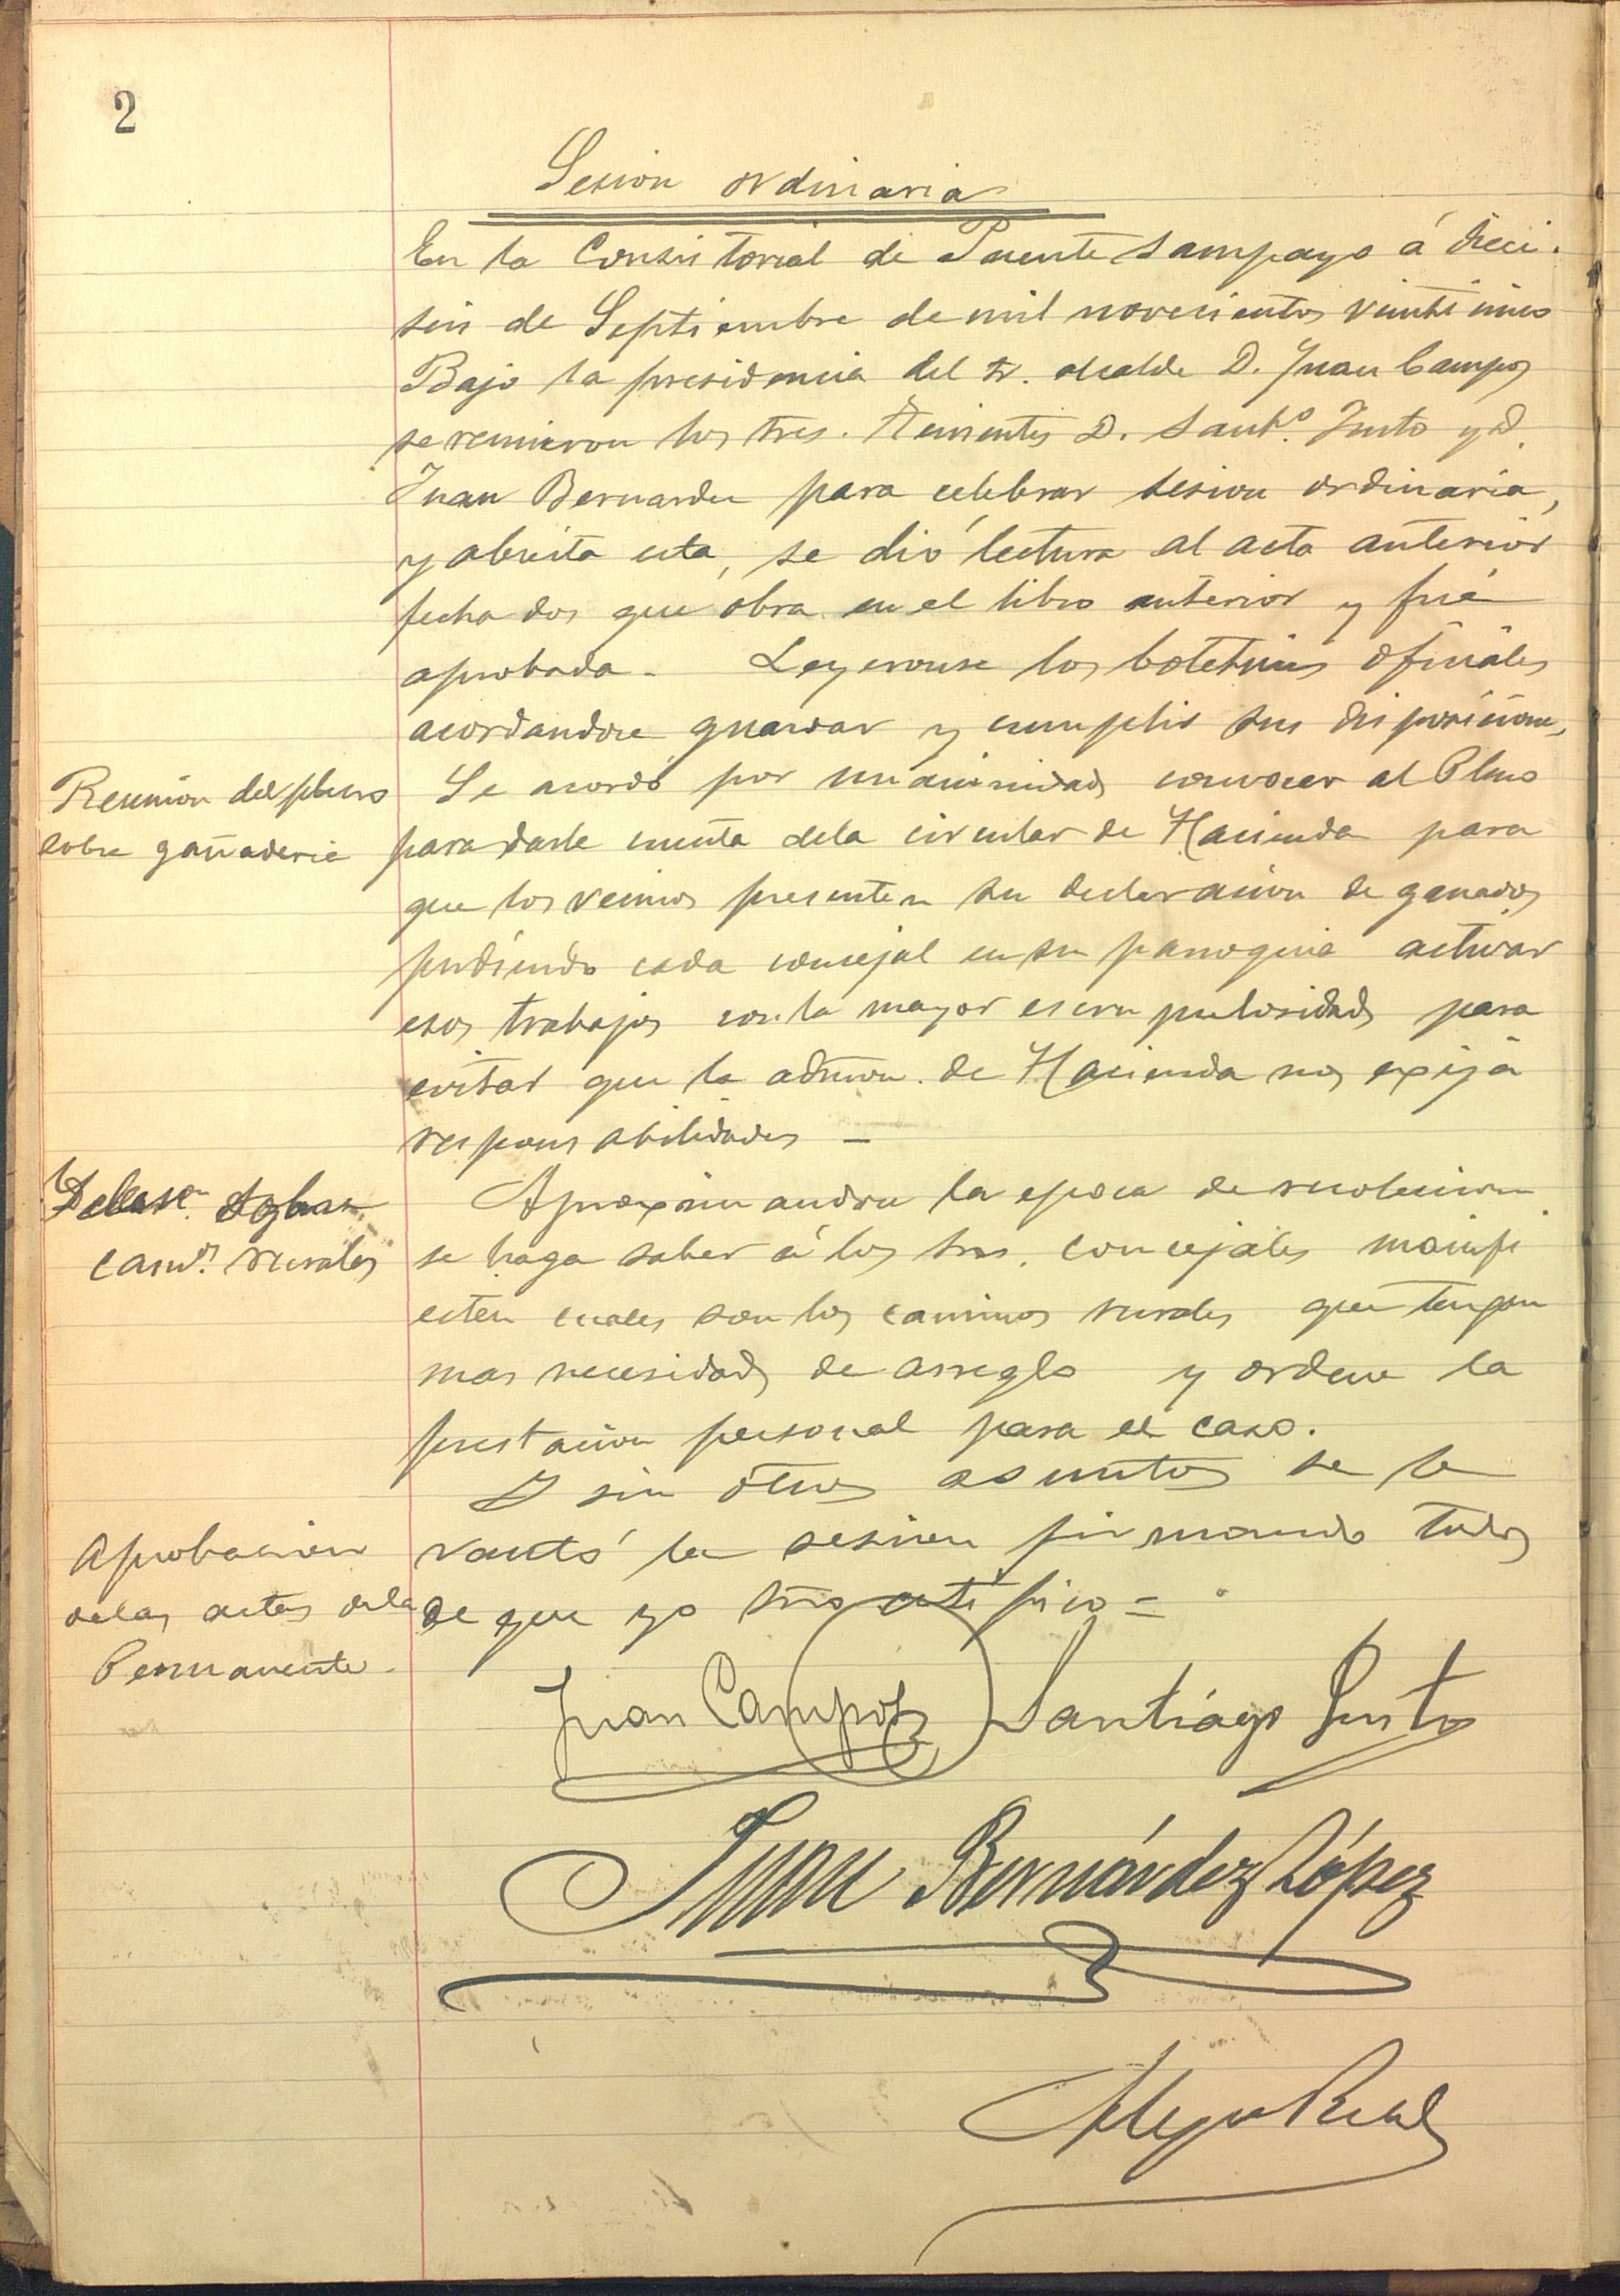 2
Sesion ordinaria
En la Consistorial de Puente Sampayo á dieci-
seis de Septiembre de mil novecientos veinticinco
Bajo la presidencia del Sr. alcalde D. Juan Campos
se reunieron los tres. Tenientes D. Santº. Justo y D.
Juan Bernardez para celebrar sesion ordinaria,
y abierta esta, se dió lectura al acta anterior
fecha dos que obra en el libro anterior y fué
aprobada. Leyeronse los boletines oficiales
acordandose guardar y cumplir sus disposiciones,
Reunion del pleno
sobre gañaderia
Se acordó por unanimidad convocar al Pleno
para darle cuenta dela circular de Hacienda para
que los vecinos presenten su declaracion de ganados
pudiendo cada concejal en su parroquia activar
esos trabajos con la mayor escrupulosidad para
evitar que la admon. de Hacienda nos exija
responsabilidades —
camos. rurales
Aproximandose la epoca de recoleccion
se haga saber á los sres. concejales manifi
esten cuales son los caminos rurales que tengan
mas necesidad de arreglo y ordene la
prestacion personal para el caso.
Y sin otros asuntos se le
vantó la sesion firmando todos
de que yo Srio certifico =
Aprobacion
delas actas dela
Permanente.
Juan Campos Santiágo Justo
Juan Bernárdez López